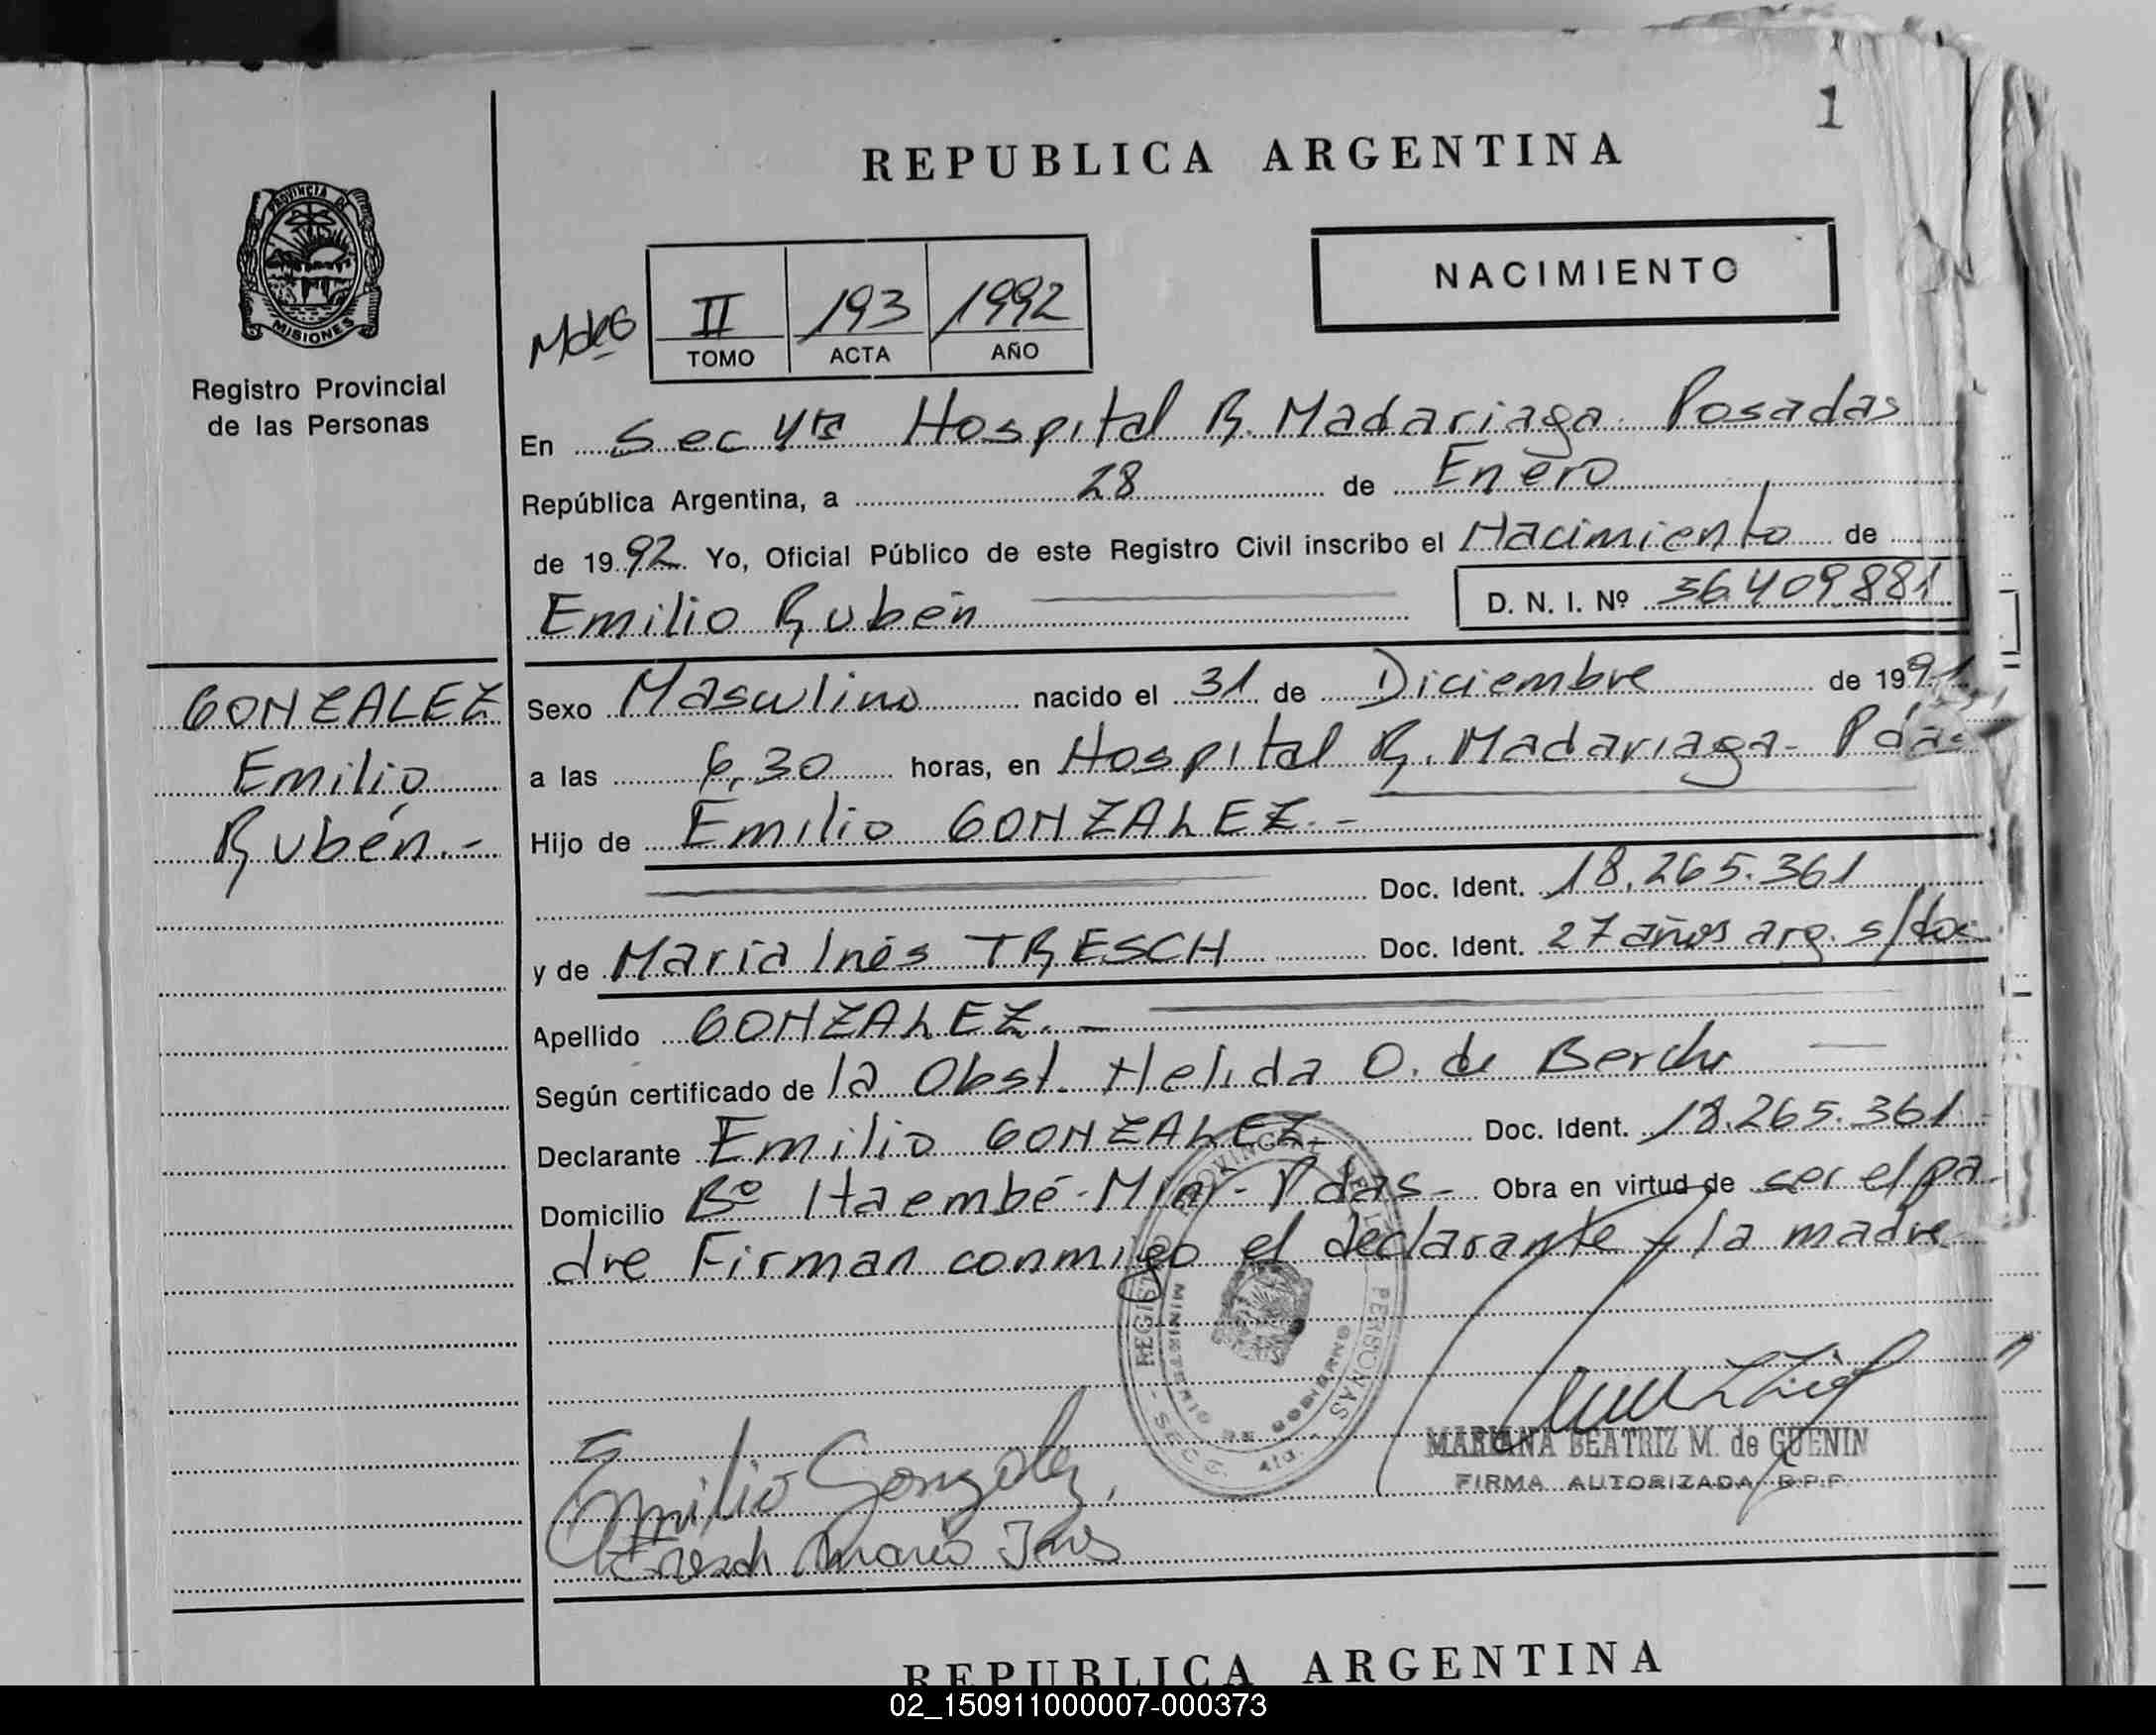 1
REPUBLICA ARGENTINA
PROVINCIA DE
MISIONES
Registro Provincial
de las Personas
NACIMIENTO
II 193 1992
TOMO ACTA AÑO
En Sec 4ta Hospital R. Madariaga. Posadas
República Argentina, a 28 de Enero
de 1992. Yo, Oficial Público de este Registro Civil inscribo el Nacimiento de
Emilio Rubén D. N. I. Nº 36.409.881
GONZALEZ
Emilio
Rubén.-
Sexo Masculino nacido el 31 de Diciembre de 1991
a las 6,30 horas, en Hospital R. Madariaga - Pdas
Hijo de Emilio GONZALEZ.-
Doc. Ident. 18.265.361
y de María Inés TRESCH Doc. Ident. 27 años arg. s/doc
Apellido GONZALEZ.-
Según certificado de la Obst. Helida O. de
Declarante Emilio GONZALEZ Doc. Ident. 18.265.361
Domicilio Bº Itaembé-Miní-Pdas- Obra en virtud de ser el pa-
dre Firman conmigo el declarante y la madre
REGISTRO PROVINCIAL DE LAS PERSONAS
MINISTERIO DE GOBIERNO
SECC. 4ta.
Emilio Gonzalez
Tresch María Inés
MARIANA BEATRIZ M. de GUENIN
FIRMA AUTORIZADA R.P.P.
REPUBLICA ARGENTINA
02_150911000007-000373